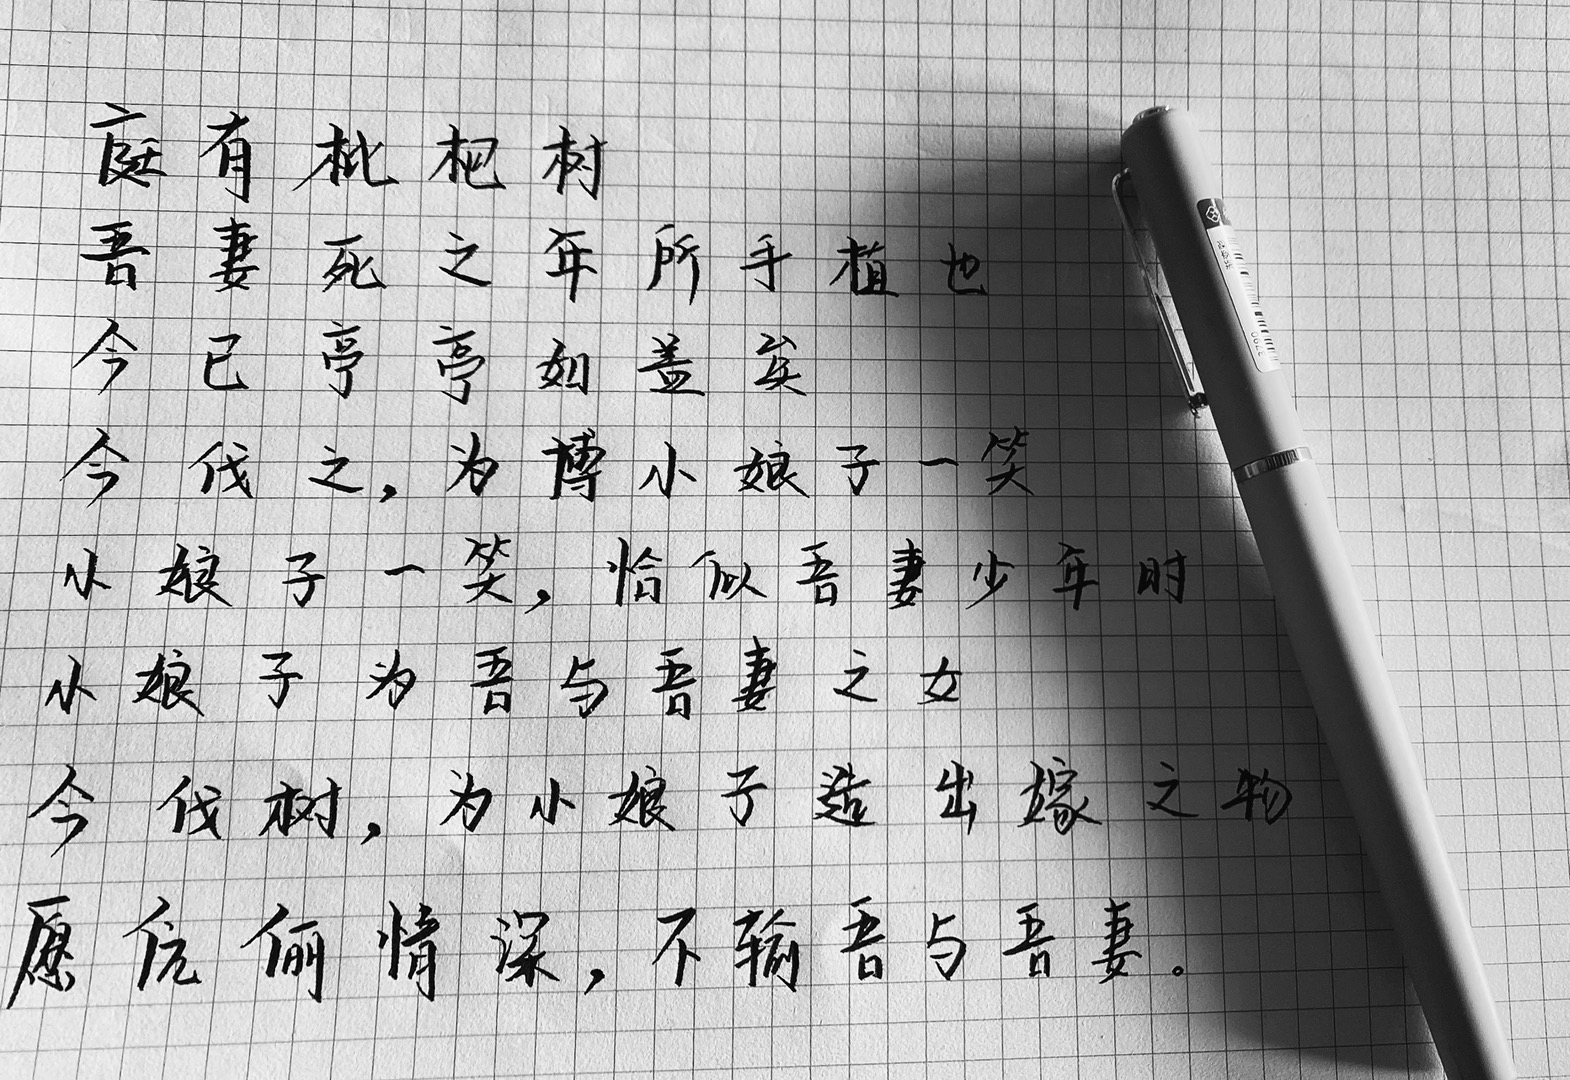 庭有枇杷树
吾妻死之年所手植也
今已亭亭如盖矣
今伐之，为博小娘子一笑
小娘子一笑，恰似吾妻少年时
小娘子为吾与吾妻之女
今伐树，为小娘子造出嫁之物
愿伉俪情深，不输吾与吾妻。